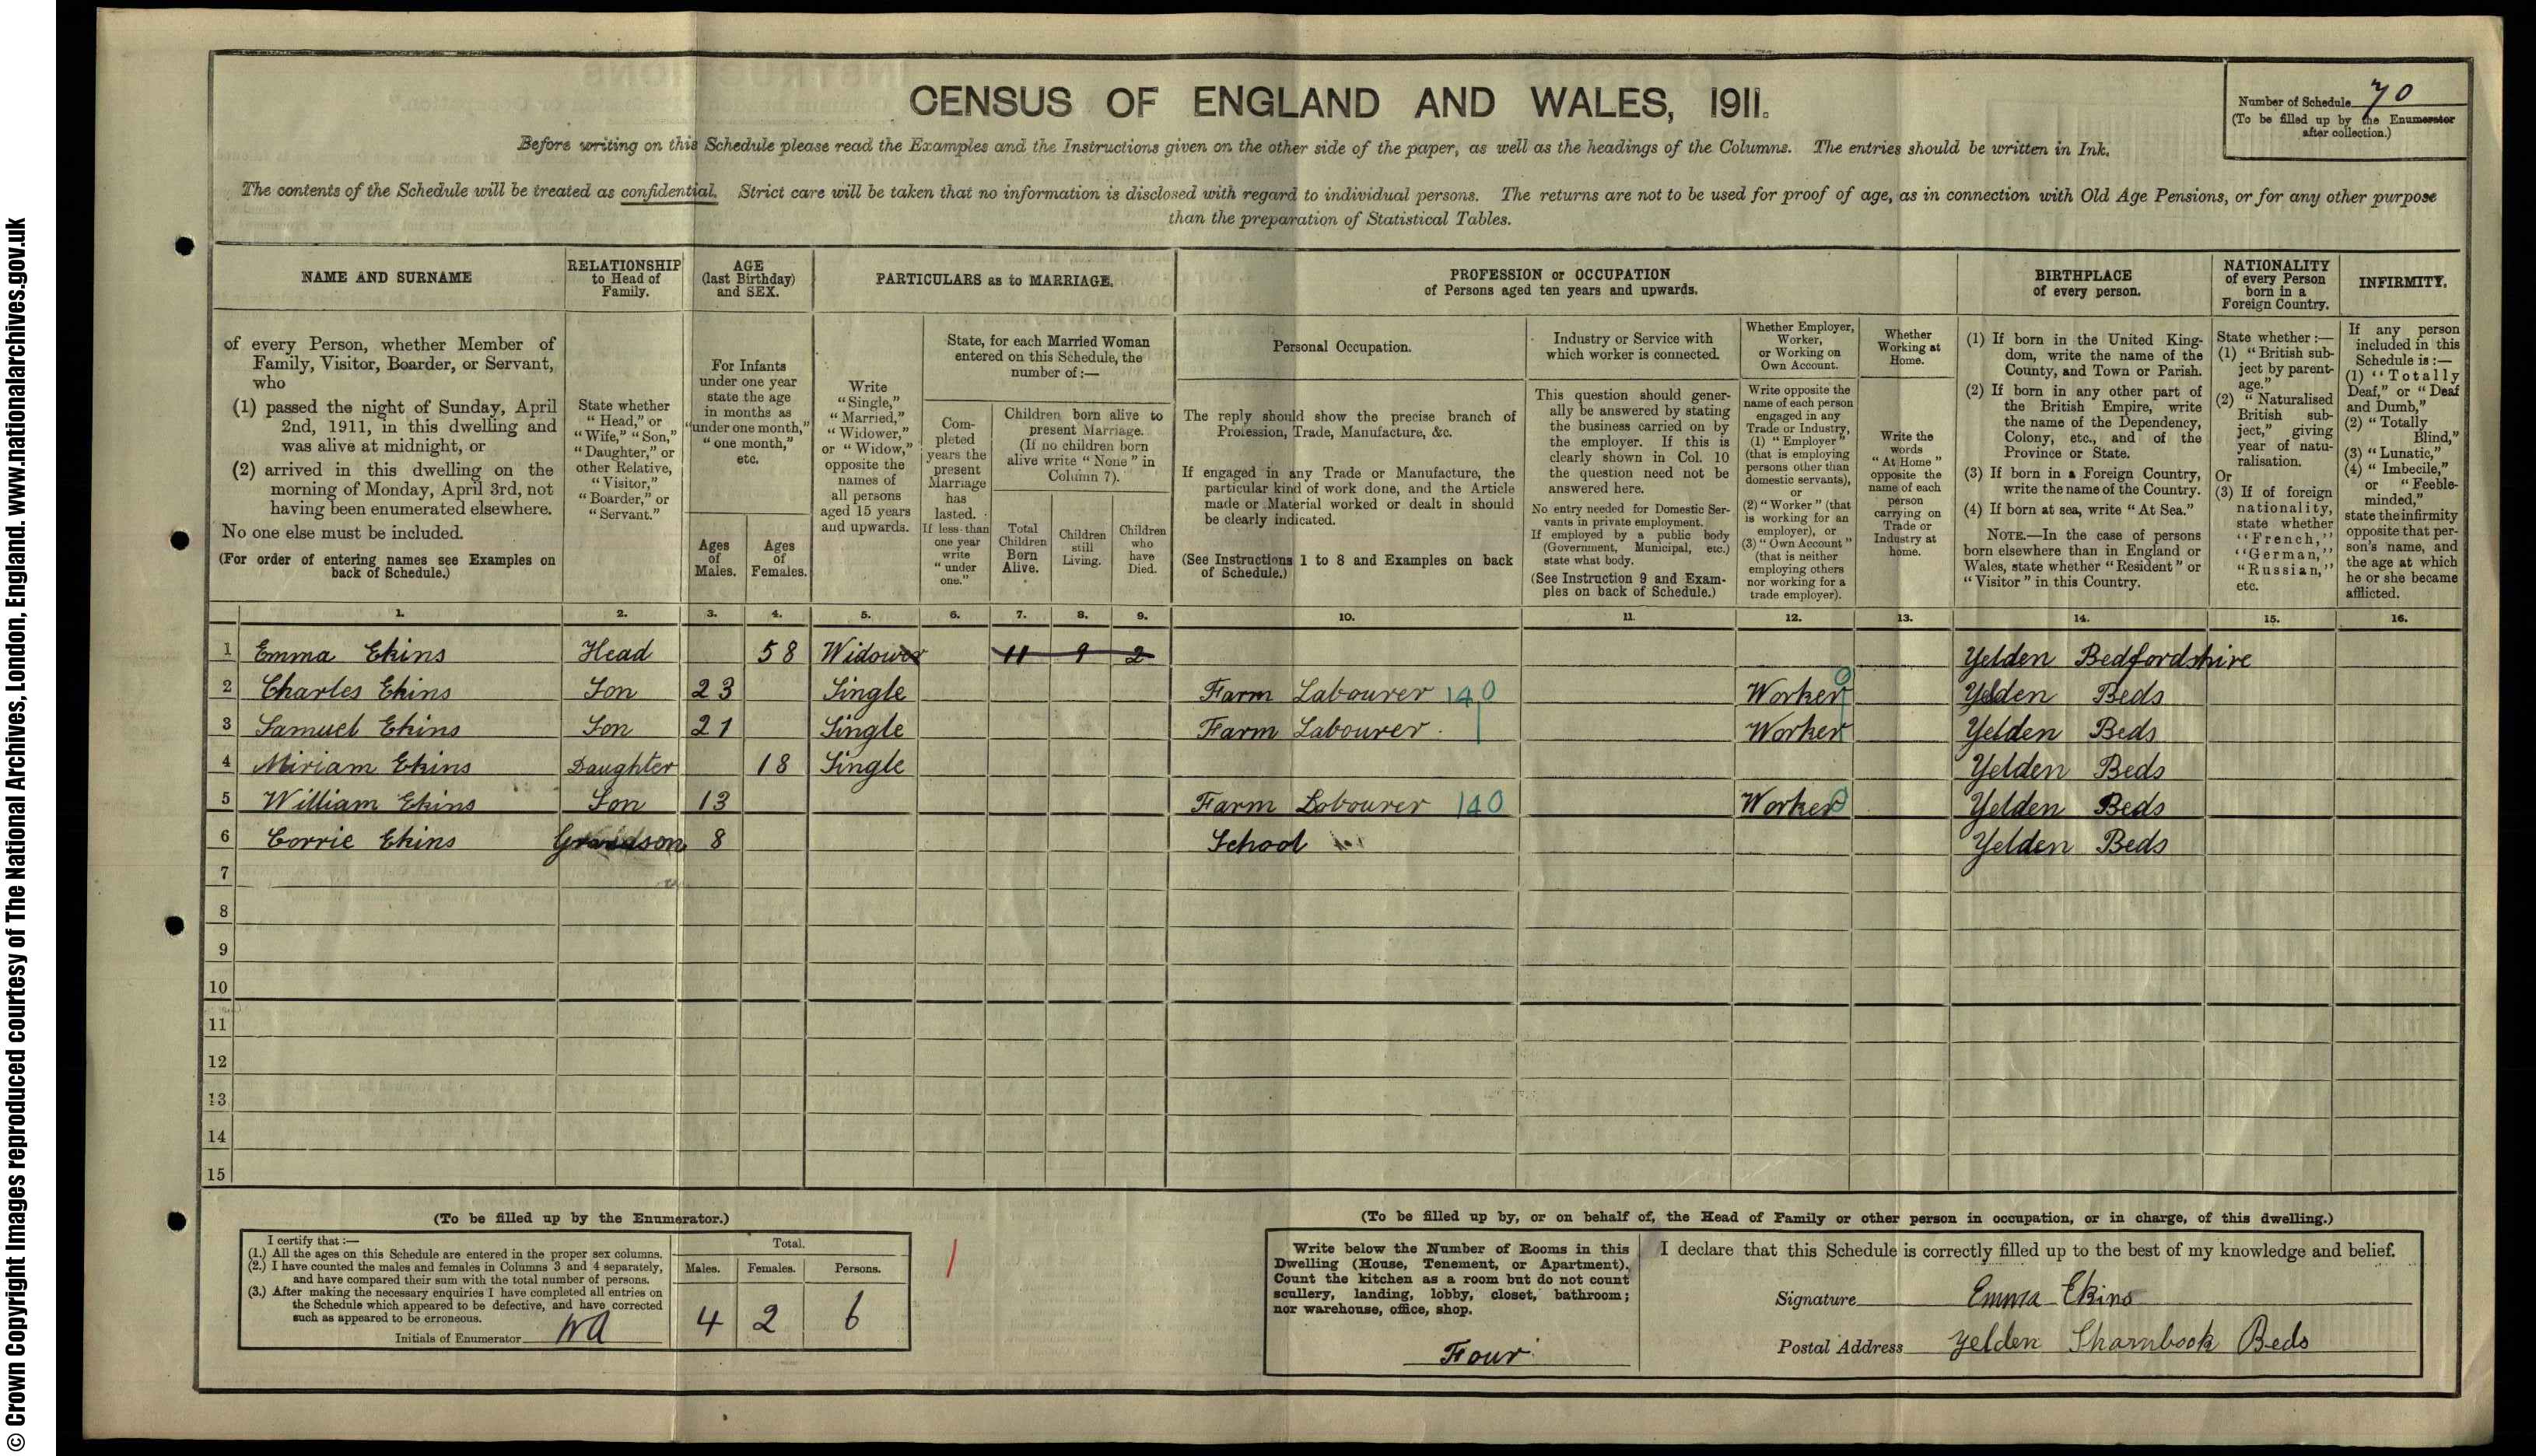 © Crown Copyright Images reproduced courtesy of The National Archives, London, England. www.nationalarchives.gov.uk
CENSUS OF ENGLAND AND WALES, 1911.
Number of Schedule 70
(To be filled up by the Enumerator
after collection.)
Before writing on this Schedule please read the Examples and the Instructions given on the other side of the paper, as well as the headings of the Columns. The entries should be written in Ink.
The contents of the Schedule will be treated as confidential. Strict care will be taken that no information is disclosed with regard to individual persons. The returns are not to be used for proof of age, as in connection with Old Age Pensions, or for any other purpose
than the preparation of Statistical Tables.
NAME AND SURNAME
of every Person, whether Member of
Family, Visitor, Boarder, or Servant,
who
(1) passed the night of Sunday, April
2nd, 1911, in this dwelling and
was alive at midnight, or
(2) arrived in this dwelling on the
morning of Monday, April 3rd, not
having been enumerated elsewhere.
No one else must be included.
(For order of entering names see Examples on
back of Schedule.)
RELATIONSHIP
to Head of
Family.
State whether
"Head," or
"Wife," "Son,"
"Daughter," or
other Relative,
"Visitor,"
"Boarder," or
"Servant."
AGE
(last Birthday)
and SEX.
For Infants
under one year
state the age
in months as
"under one month,"
"one month,"
etc.
Ages
of
Males.
Ages
of
Females.
PARTICULARS as to MARRIAGE.
Write
"Single,"
"Married,"
"Widower,"
or "Widow,"
opposite the
names of
all persons
aged 15 years
and upwards.
State, for each Married Woman
entered on this Schedule, the
number of:—
Com-
pleted
years the
present
Marriage
has
lasted.
If less than
one year
write
"under
one."
Children born alive to
present Marriage.
(If no children born
alive write "None" in
Column 7).
Total
Children
Born
Alive.
Children
still
Living.
Children
who
have
Died.
PROFESSION or OCCUPATION
of Persons aged ten years and upwards.
Personal Occupation.
The reply should show the precise branch of
Profession, Trade, Manufacture, &c.
If engaged in any Trade or Manufacture, the
particular kind of work done, and the Article
made or Material worked or dealt in should
be clearly indicated.
(See Instructions 1 to 8 and Examples on back
of Schedule.)
Industry or Service with
which worker is connected.
This question should gener-
ally be answered by stating
the business carried on by
the employer. If this is
clearly shown in Col. 10
the question need not be
answered here.
No entry needed for Domestic Ser-
vants in private employment.
If employed by a public body
(Government, Municipal, etc.)
state what body.
(See Instruction 9 and Exam-
ples on back of Schedule.)
Whether Employer,
Worker,
or Working on
Own Account.
Write opposite the
name of each person
engaged in any
Trade or Industry,
(1) "Employer"
(that is employing
persons other than
domestic servants),
or
(2) "Worker" (that
is working for an
employer), or
(3) "Own Account"
(that is neither
employing others
nor working for a
trade employer).
Whether
Working at
Home.
Write the
words
"At Home"
opposite the
name of each
person
carrying on
Trade or
Industry at
home.
BIRTHPLACE
of every person.
(1) If born in the United King-
dom, write the name of the
County, and Town or Parish.
(2) If born in any other part of
the British Empire, write
the name of the Dependency,
Colony, etc., and of the
Province or State.
(3) If born in a Foreign Country,
write the name of the Country.
(4) If born at sea, write "At Sea."
NOTE.—In the case of persons
born elsewhere than in England or
Wales, state whether "Resident" or
"Visitor" in this Country.
NATIONALITY
of every Person
born in a
Foreign Country.
State whether:—
(1) "British sub-
ject by parent-
age."
(2) "Naturalised
British sub-
ject," giving
year of natu-
ralisation.
Or
(3) If of foreign
nationality,
state whether
"French,"
"German,"
"Russian,"
etc.
INFIRMITY.
If any person
included in this
Schedule is:—
(1) "Totally
Deaf," or "Deaf
and Dumb,"
(2) "Totally
Blind,"
(3) "Lunatic,"
(4) "Imbecile,"
or "Feeble-
minded,"
state the infirmity
opposite that per-
son's name, and
the age at which
he or she became
afflicted.
1. 2. 3. 4. 5. 6. 7. 8. 9. 10. 11. 12. 13. 14. 15. 16.
1 Emma Ekins Head 58 Widower 11 9 2 Yelden Bedfordshire
2 Charles Ekins Son 23 Single Farm Labourer 140 Worker Yelden Beds
3 Samuel Ekins Son 21 Single Farm Labourer Worker Yelden Beds
4 Miriam Ekins Daughter 18 Single Yelden Beds
5 William Ekins Son 13 Farm Labourer 140 Worker Yelden Beds
6 Corrie Ekins Grandson 8 School Yelden Beds
7
8
9
10
11
12
13
14
15
(To be filled up by the Enumerator.)
I certify that:—
(1.) All the ages on this Schedule are entered in the proper sex columns.
(2.) I have counted the males and females in Columns 3 and 4 separately,
and have compared their sum with the total number of persons.
(3.) After making the necessary enquiries I have completed all entries on
the Schedule which appeared to be defective, and have corrected
such as appeared to be erroneous.
Initials of Enumerator
Total.
Males. Females. Persons.
4 2 6
(To be filled up by, or on behalf of, the Head of Family or other person in occupation, or in charge, of this dwelling.)
Write below the Number of Rooms in this
Dwelling (House, Tenement, or Apartment).
Count the kitchen as a room but do not count
scullery, landing, lobby, closet, bathroom;
nor warehouse, office, shop.
Four
I declare that this Schedule is correctly filled up to the best of my knowledge and belief.
Signature Emma Ekins
Postal Address Yelden Sharnbook Beds